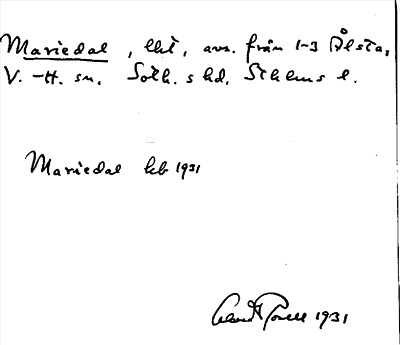 Mariedal, lht, avs. från 1-3 Ålsta,
V.-H. sn. Soth. shd. Sthlms l.
Mariedal kb 1931
1931